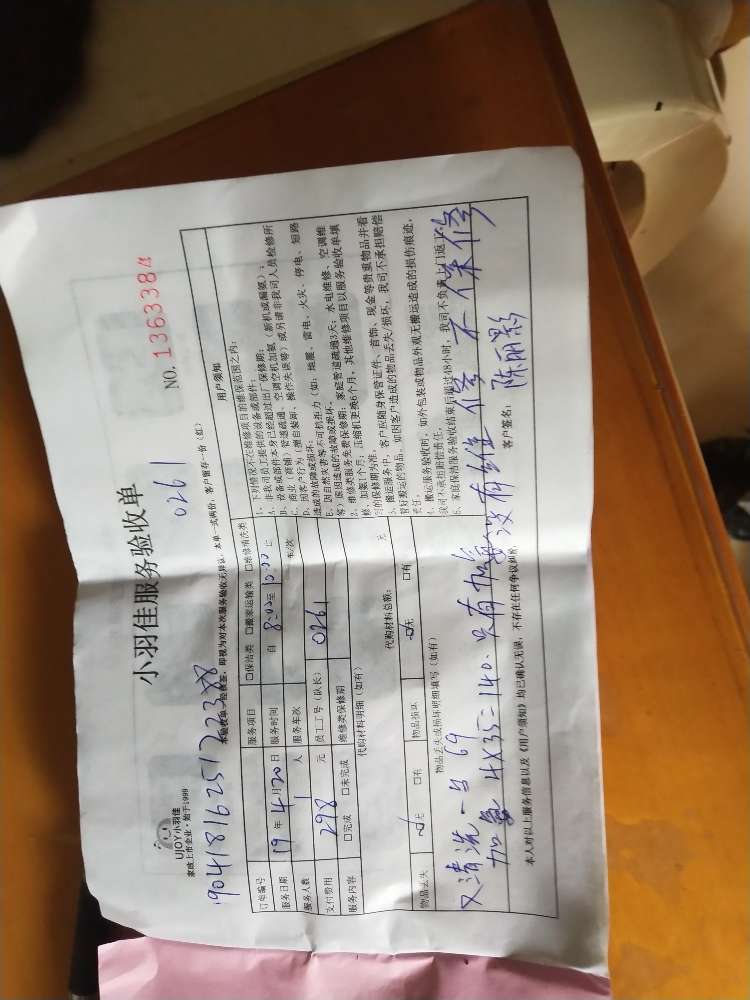 UJOY小羽佳
家政上市企业·始于1999
小羽佳服务验收单
NO. 1363384
0261
1904181625172388
本验收单一经签署,即视为对本次服务验收无异议。本单一式两份,客户留存一份(红)
订单编号
服务项目 □保洁类 □搬家运输类 □维修清洗类
服务日期 19 年 4 月 20 日
服务时间 自 8:00 至 10:00 止
服务人数 1 人
服务车次 车/次
支付费用 298 元
员工工号(队长) 0261
服务内容 □完成 □未完成
维修类保修期
代购材料明细(如有)
代购材料总额: 元
物品丢失 □无 □有
物品损坏 □无 □有
物品丢失或损坏明细填写(如有)
又清洗一台 69
加氨 4X35=140.只有加氨没有维修不保修
用户须知
1、下列情况不在维修项目的维保范围之内:
A、非我司员工提供的设备或部件;
B、设备或部件本身已经超过出厂保修期;
C、商业(商铺)管道疏通、空调空机加氨(新机或漏氨);
D、因客户行为(擅自装卸、操作失误等)或另请非我司人员检修所
造成的故障或损坏;
E、因自然灾害等不可抗拒力(如:地震、雷电、火灾、停电、短路
等)原因造成的故障或损坏。
2、维修类服务免费保修期:家庭管道疏通3天;水电维修、空调维
修、加氨1个月;压缩机更换6个月,其他维修项目以服务验收单填
写的保修期为准。
3、搬运服务中,客户应随身保管证件、首饰、现金等贵重物品并看
管好搬运的物品,如因客户造成的物品丢失/损坏,我司不承担赔偿
责任。
4、搬运服务验收时,如外包装或物品外观无搬运造成的损伤痕迹,
我司不承担赔偿责任。
6、家庭保洁服务验收结束后超过48小时,我司不负责上门返工
本人对以上服务信息以及《用户须知》均已确认无误,不存在任何争议纠纷。
客户签名: 陈丽影